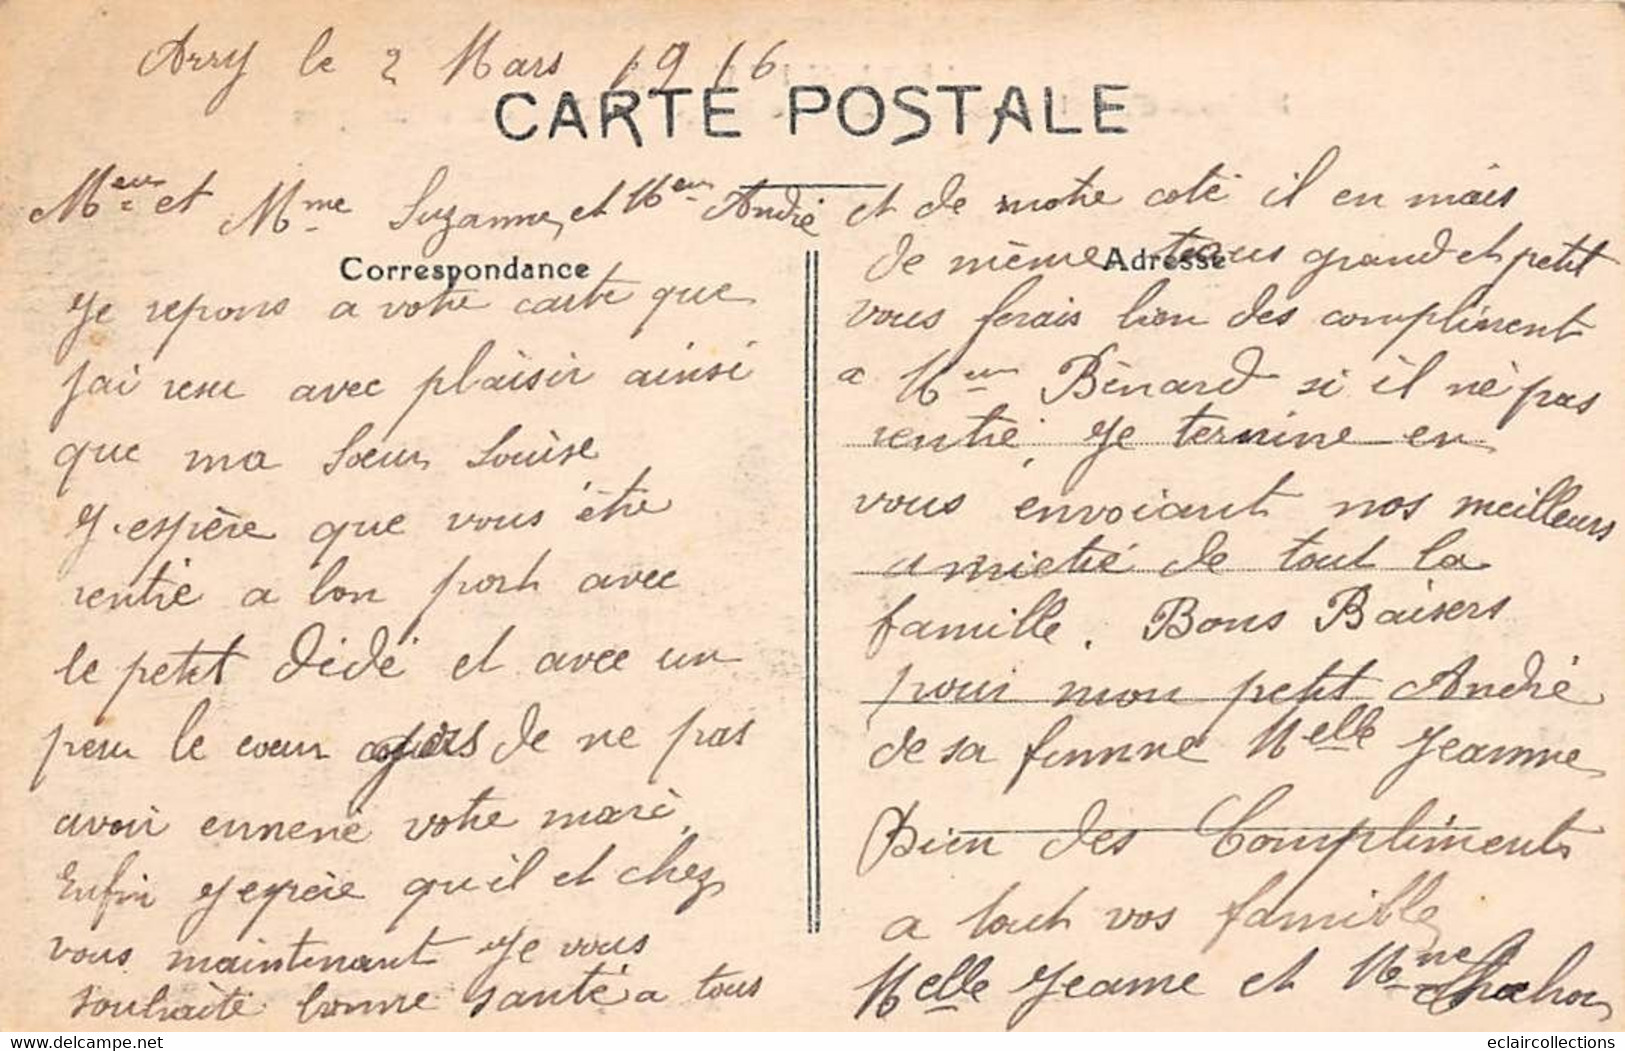 Arry le 2 Mars 1916
CARTE POSTALE
Meur et Mme Suzanne, et Meur André
Correspondance
Je repons a votre carte que
j'ai resu avec plaisir ainsi
que ma sœur Louise
J'espère que vous être
rentré a bon port avec
le petit Dédé et avec un
peu le cœur gros de ne pas
avoir enmené votre mari,
Enfin J'espère qu'il et chez
vous maintenant Je vous
souhaite bonne santé a tous
et de notre coté il en mais
Adresse
de même tous grand et petit
vous ferais bien des compliment
a Meur Bénard si il nè pas
rentré, Je termine en
vous envoiant nos meilleurs
amietié de tout la
famille. Bons Baisers
pour mon petit André
de sa femme Melle Jeanne
Bien des Compliments
a tout vos famille
Melle Jeanne et Mme
eclaircollections
www.delcampe.net